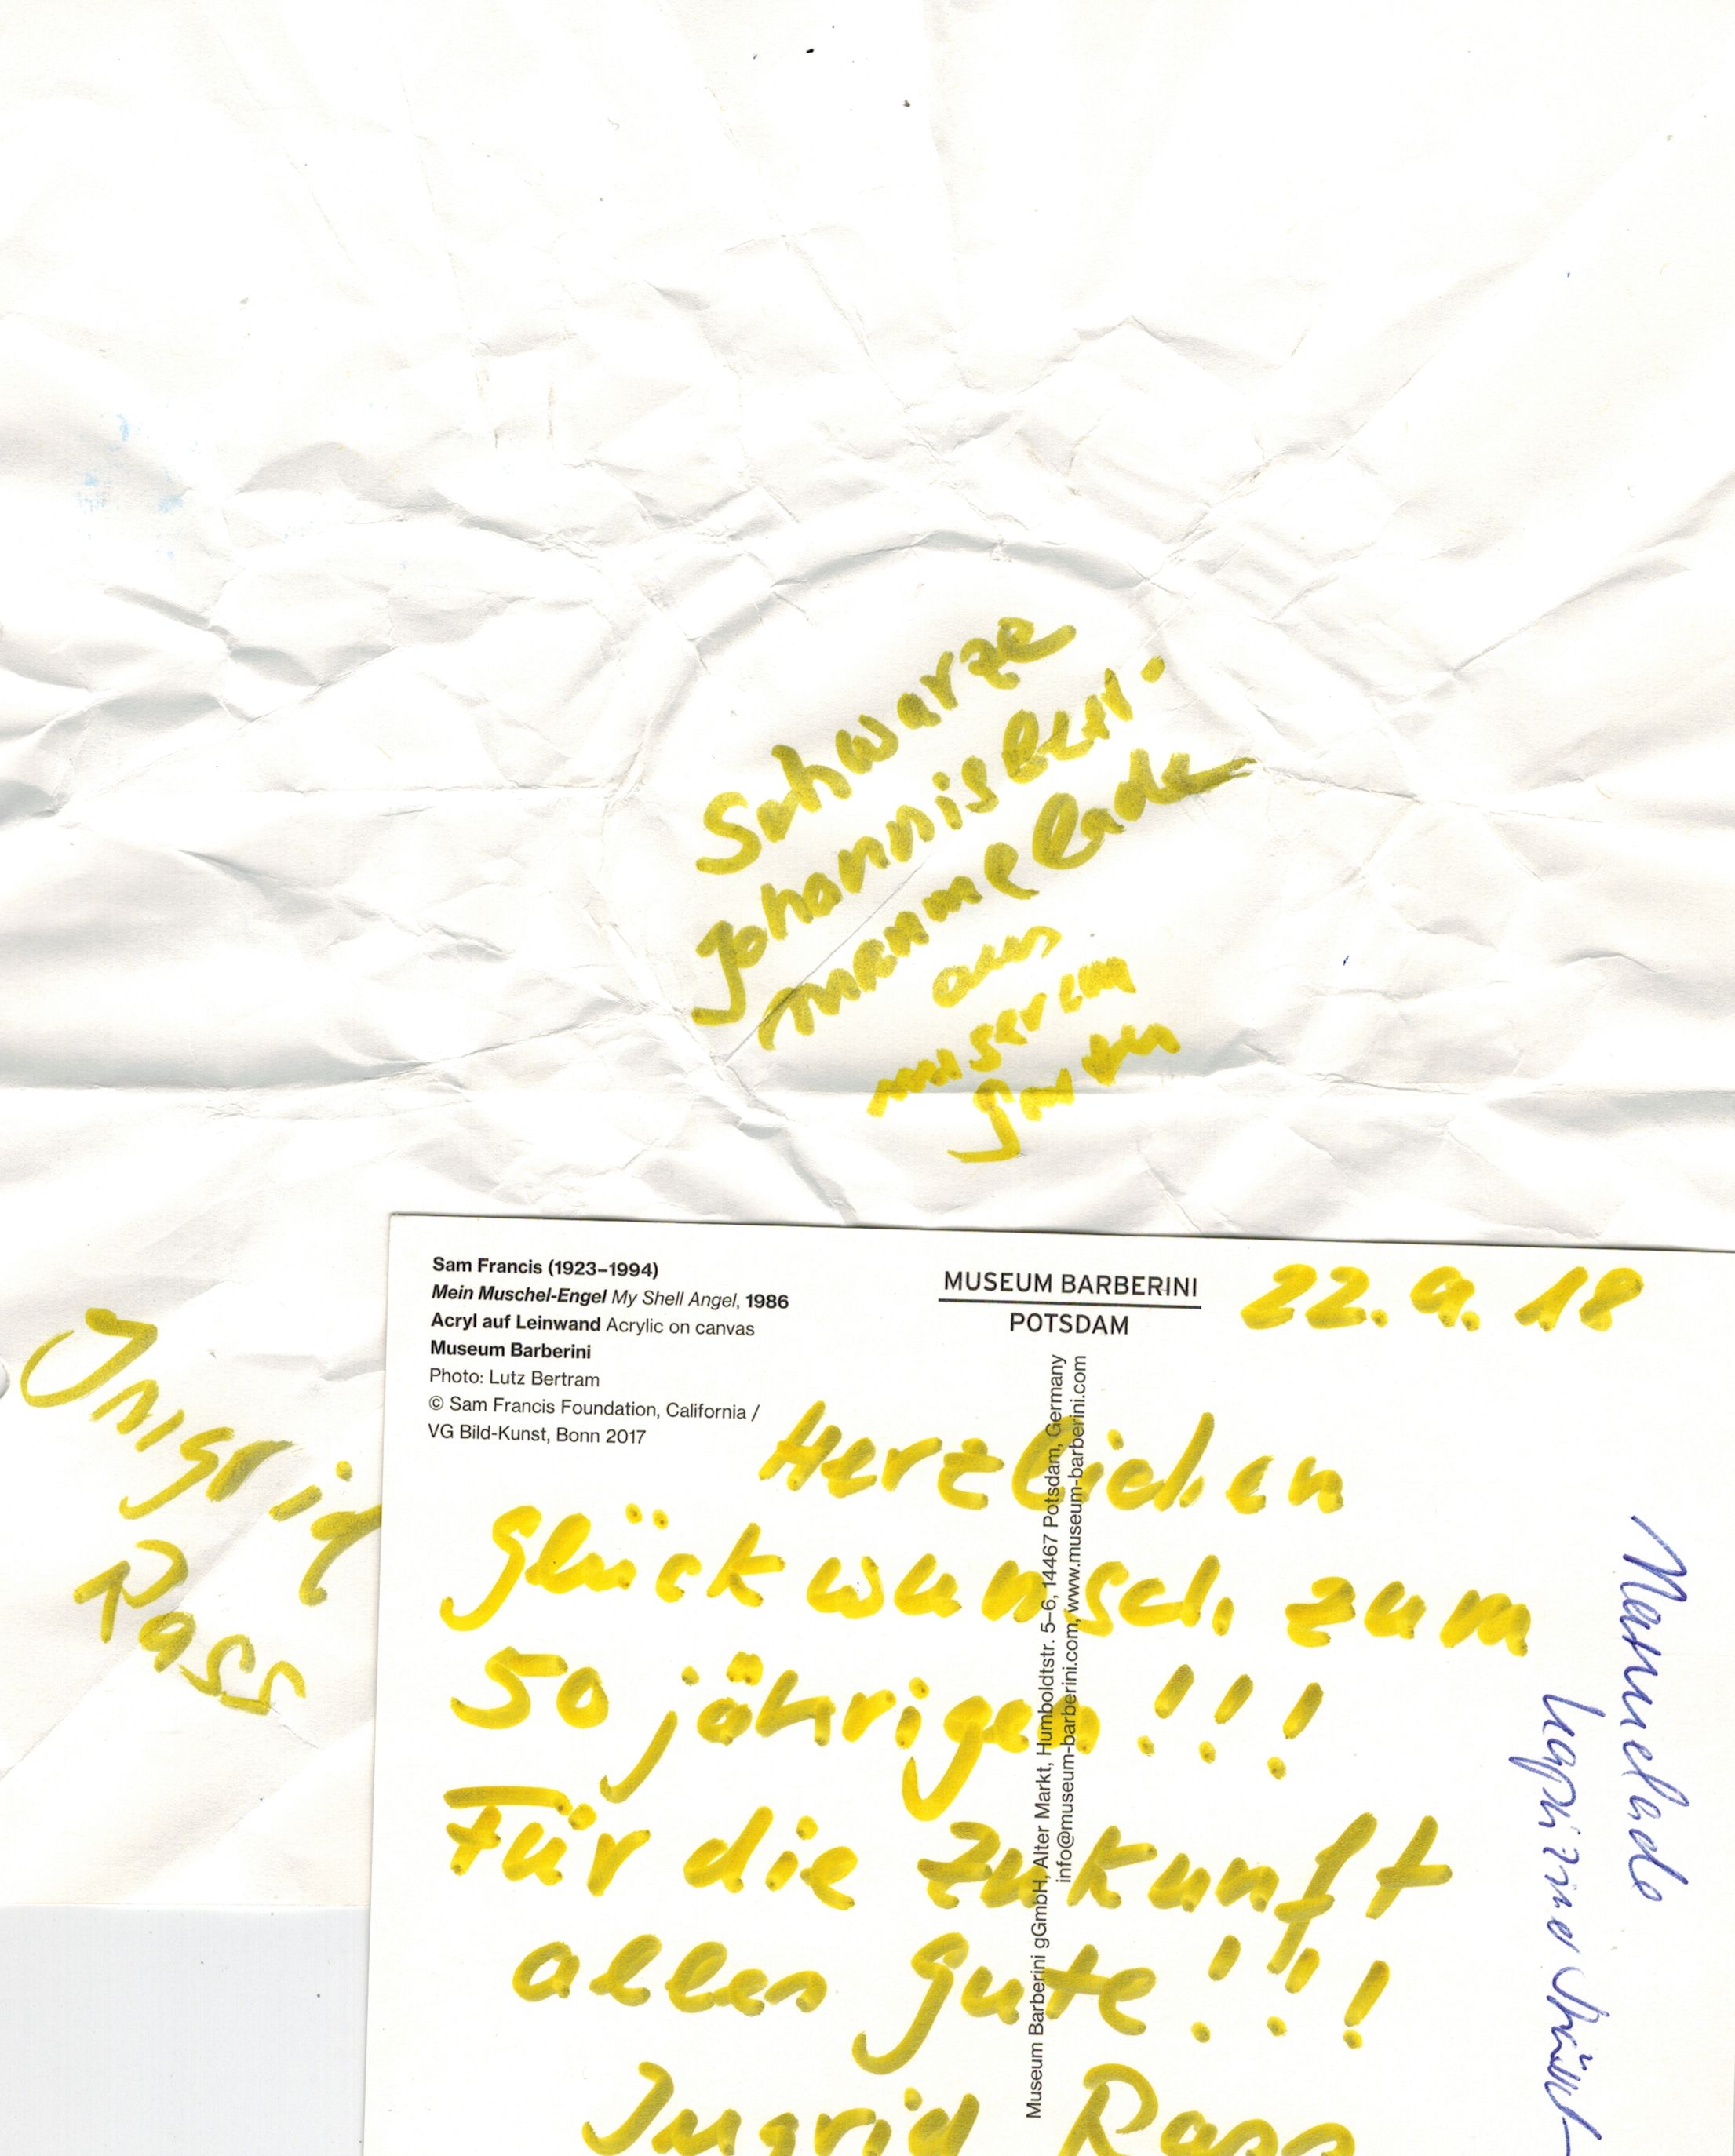 Schwarze
Johannisbeer-
marmelade
aus
unserem
Garten
Ingrid
Rass
Sam Francis (1923–1994)
Mein Muschel-Engel My Shell Angel, 1986
Acryl auf Leinwand Acrylic on canvas
Museum Barberini
Photo: Lutz Bertram
© Sam Francis Foundation, California /
VG Bild-Kunst, Bonn 2017
MUSEUM BARBERINI
POTSDAM
22.9.18
Museum Barberini gGmbH, Alter Markt, Humboldtstr. 5–6, 14467 Potsdam, Germany
info@museum-barberini.com, www.museum-barberini.com
Herzlichen
Glückwunsch zum
50 jährigen!!!
Für die Zukunft
alles Gute!!!
Ingrid Rass
Marmelade